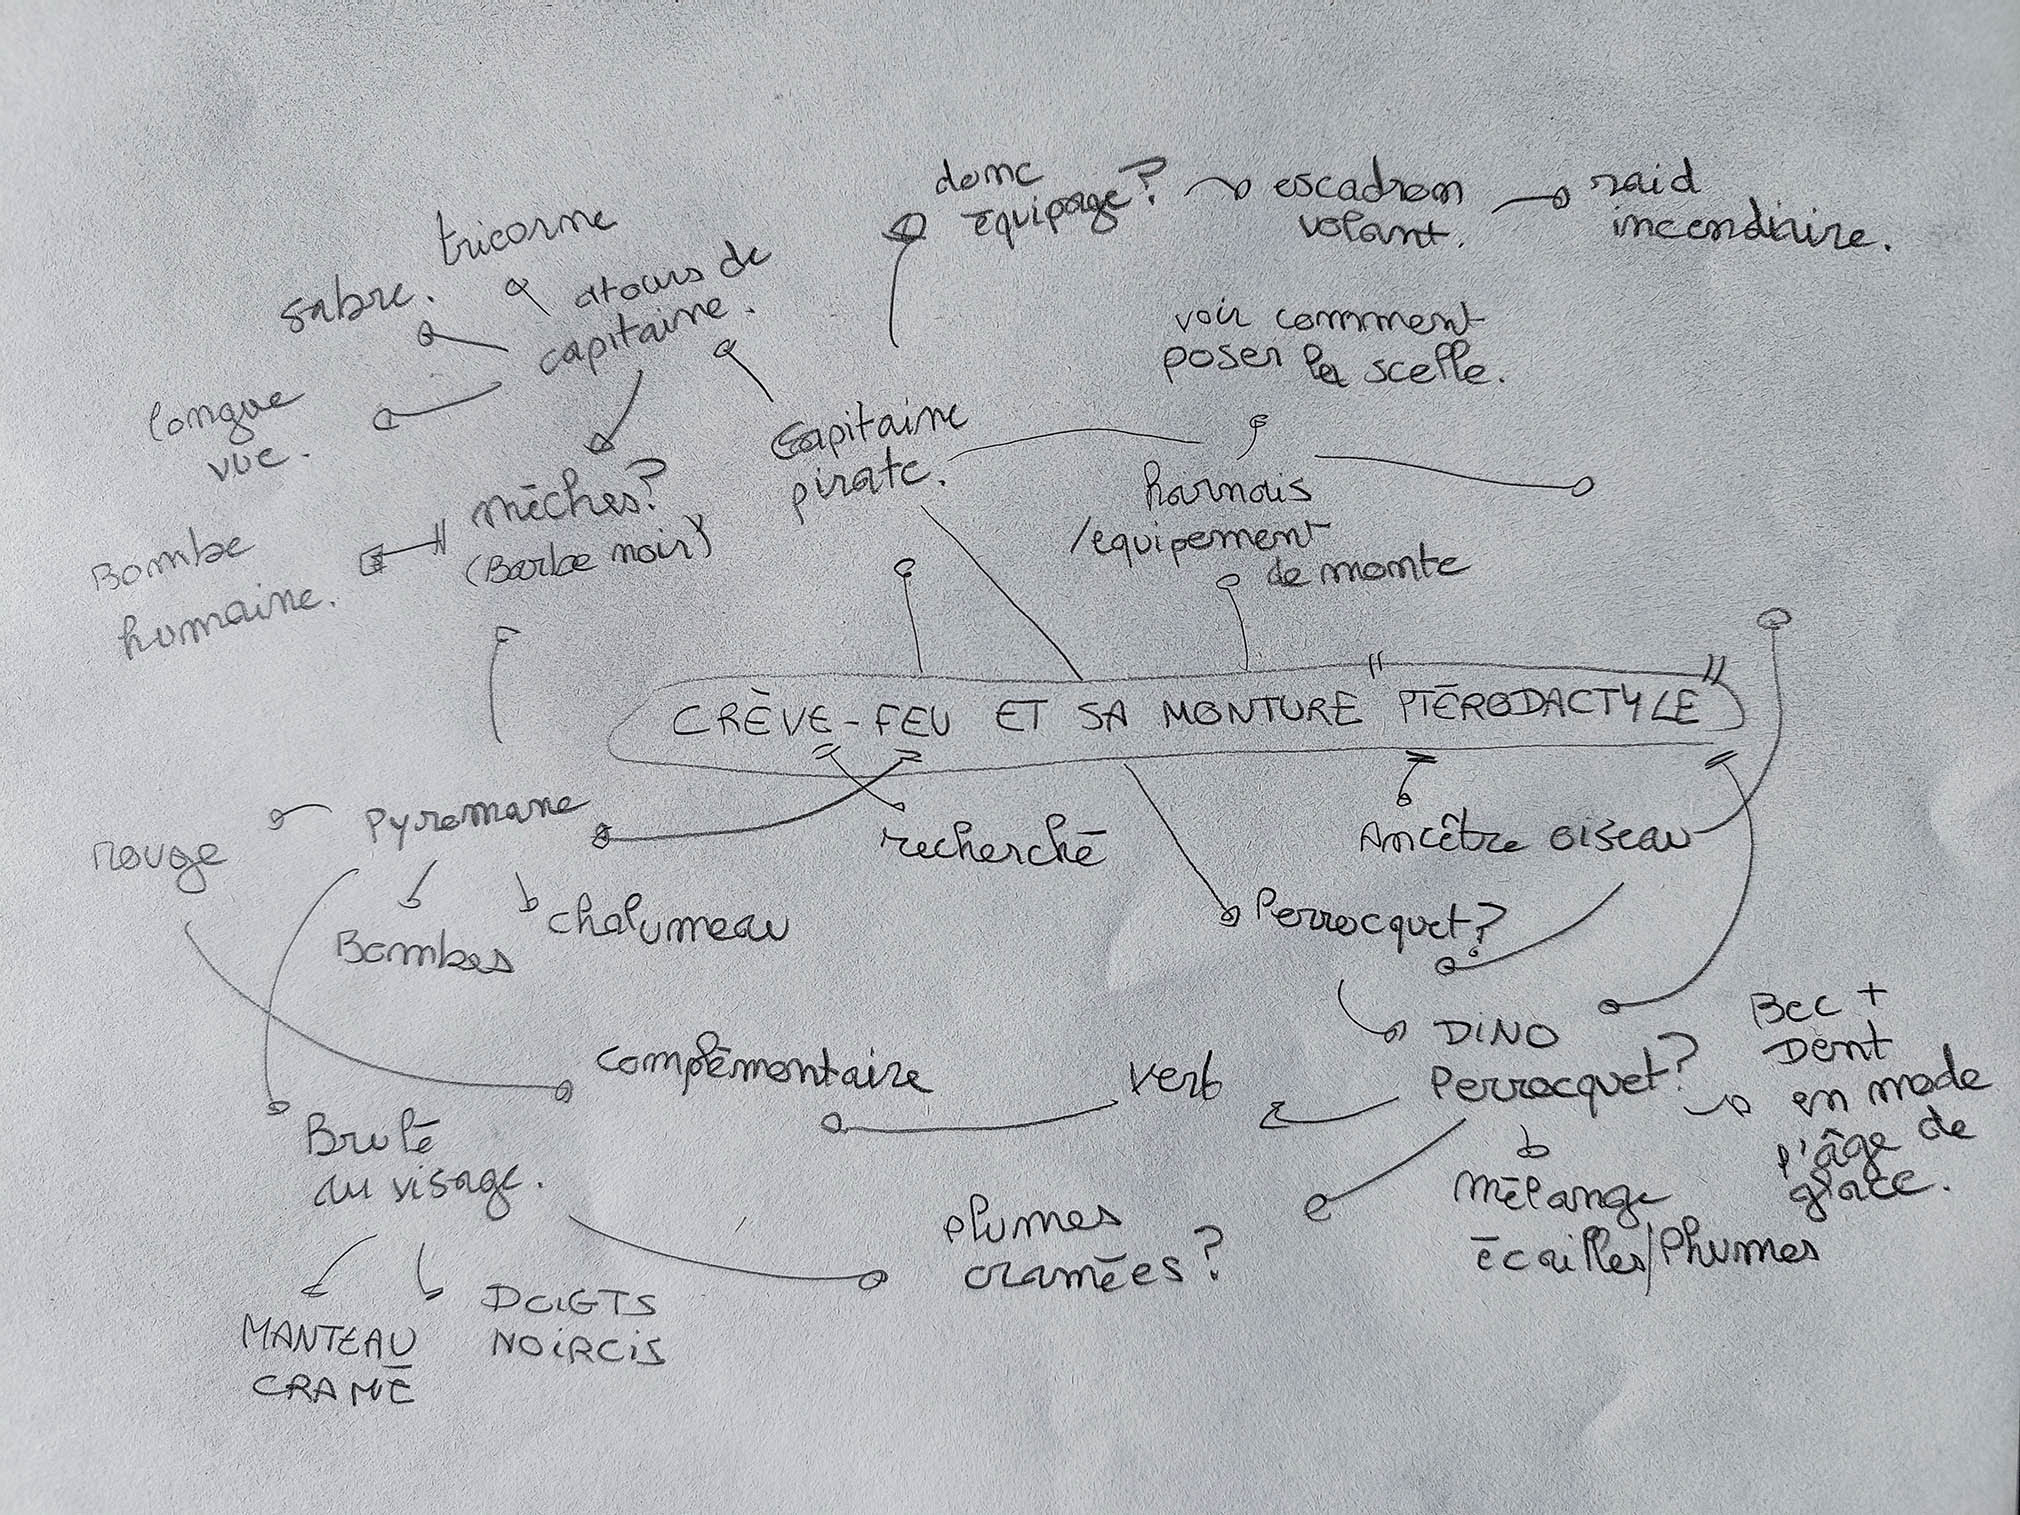 donc
équipage?
escadron
volant.
raid
incendiaire.
tricorne
sabre.
atours de
capitaine.
longue
vue.
voir comment
poser la scelle.
Capitaine
pirate.
mèches?
(Barbe noir)
Bombe
humaine.
harnais
/equipement
de monte
CRÈVE-FEU ET SA MONTURE "PTÉRODACTYLE"
Pyromane
rouge
recherché
Ancêtre oiseau
Bombes
chalumeau
Perrocquet?
DINO
Perrocquet?
Bec +
Dent
en mode
l'âge de
glace.
complémentaire
vert
Brulé
au visage.
mélange
écailles/Plumes
plumes
cramées?
MANTEAU
CRAMÉ
DOIGTS
NOIRCIS